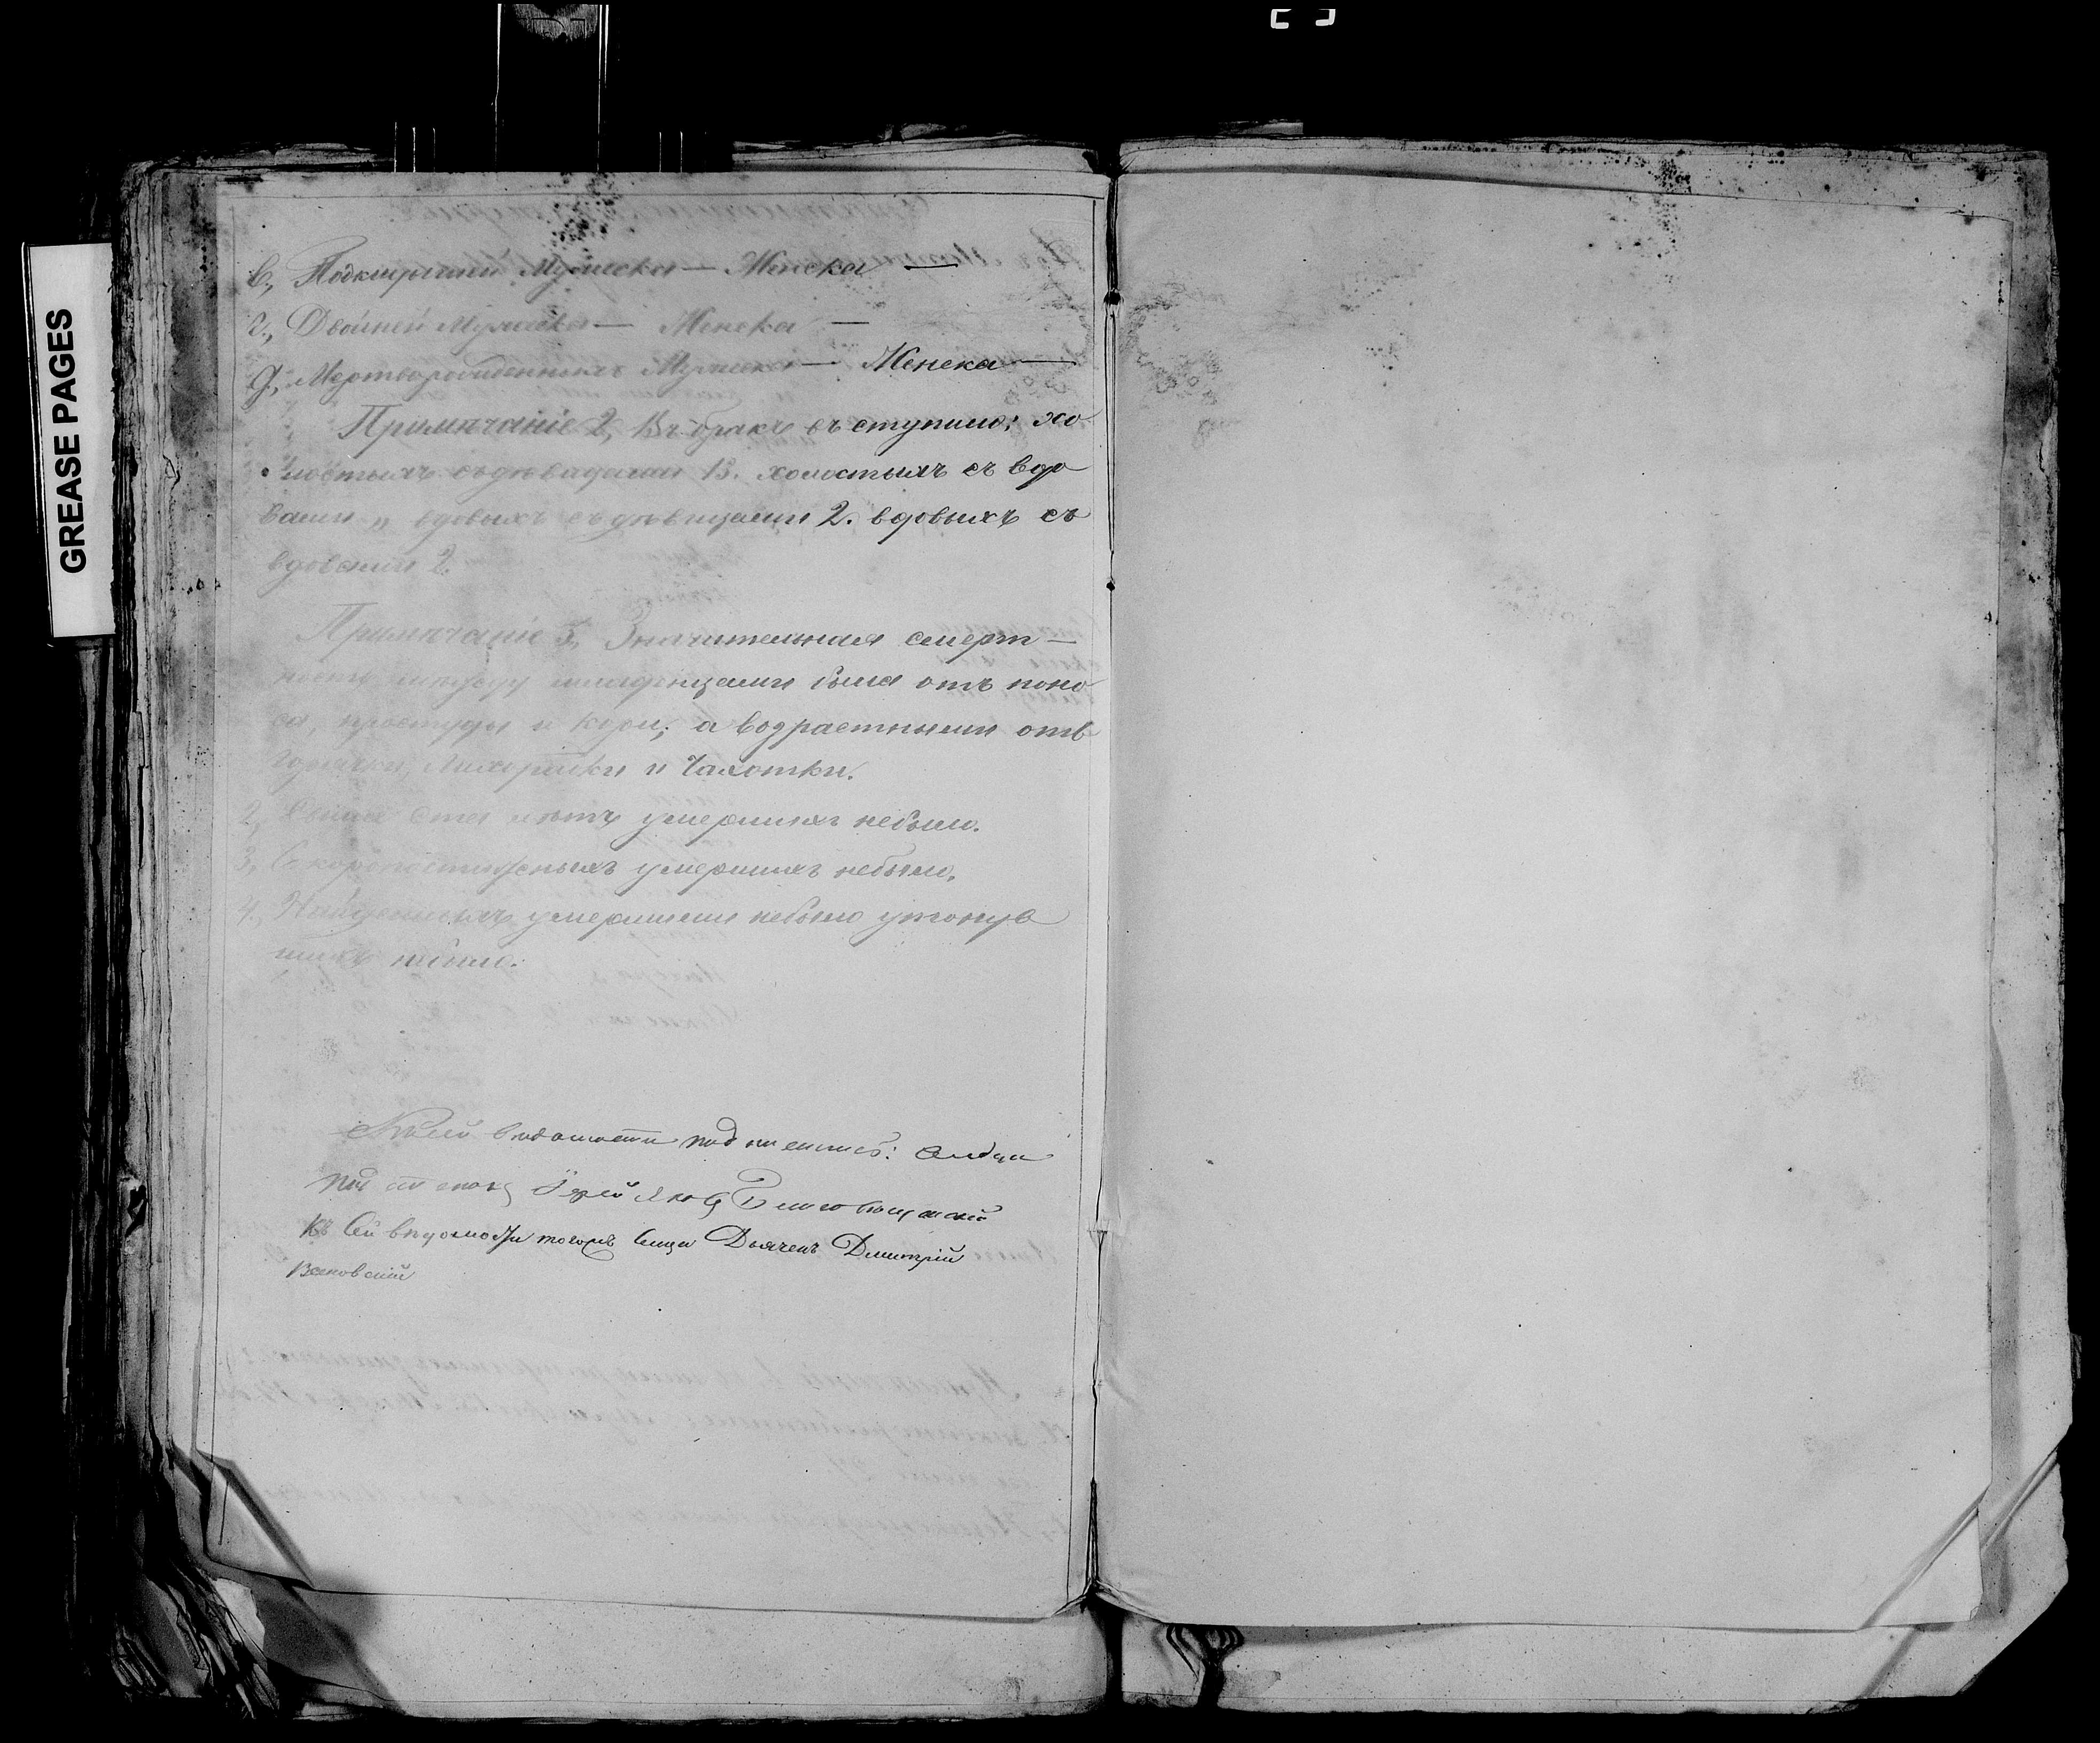 GREASE PAGES
в., Подкидышей Мужеска — Женска —
г., Двойней Мужеска — Женска —
д., Мертворожденныхъ Мужеска — Женска —
Примѣчаніе 2, Въ бракъ въ ступило: хо
лостыхъ съ дѣвицами 13. холостыхъ съ вдо
вами „ вдовыхъ съ дѣвицами 2. вдовыхъ съ
вдовами 2.
Примѣчаніе 3, Значительная смерт—
ность между младенцами была отъ поно
са, простуды и Кори; а возрастными отъ
Горячки, Лихорадки и Чахотки.
2, Свыше Ста лѣтъ умершихъ небыло.
3, Скоропостижныхъ умершихъ небыло.
4., Найденныхъ умершими небыло утонув
шихъ небыло.
Къ сей вѣдомости подписался:
Іерей Яковъ
Къ Сей вѣдомости тогожъ Села Дьячекъ Дмитрій